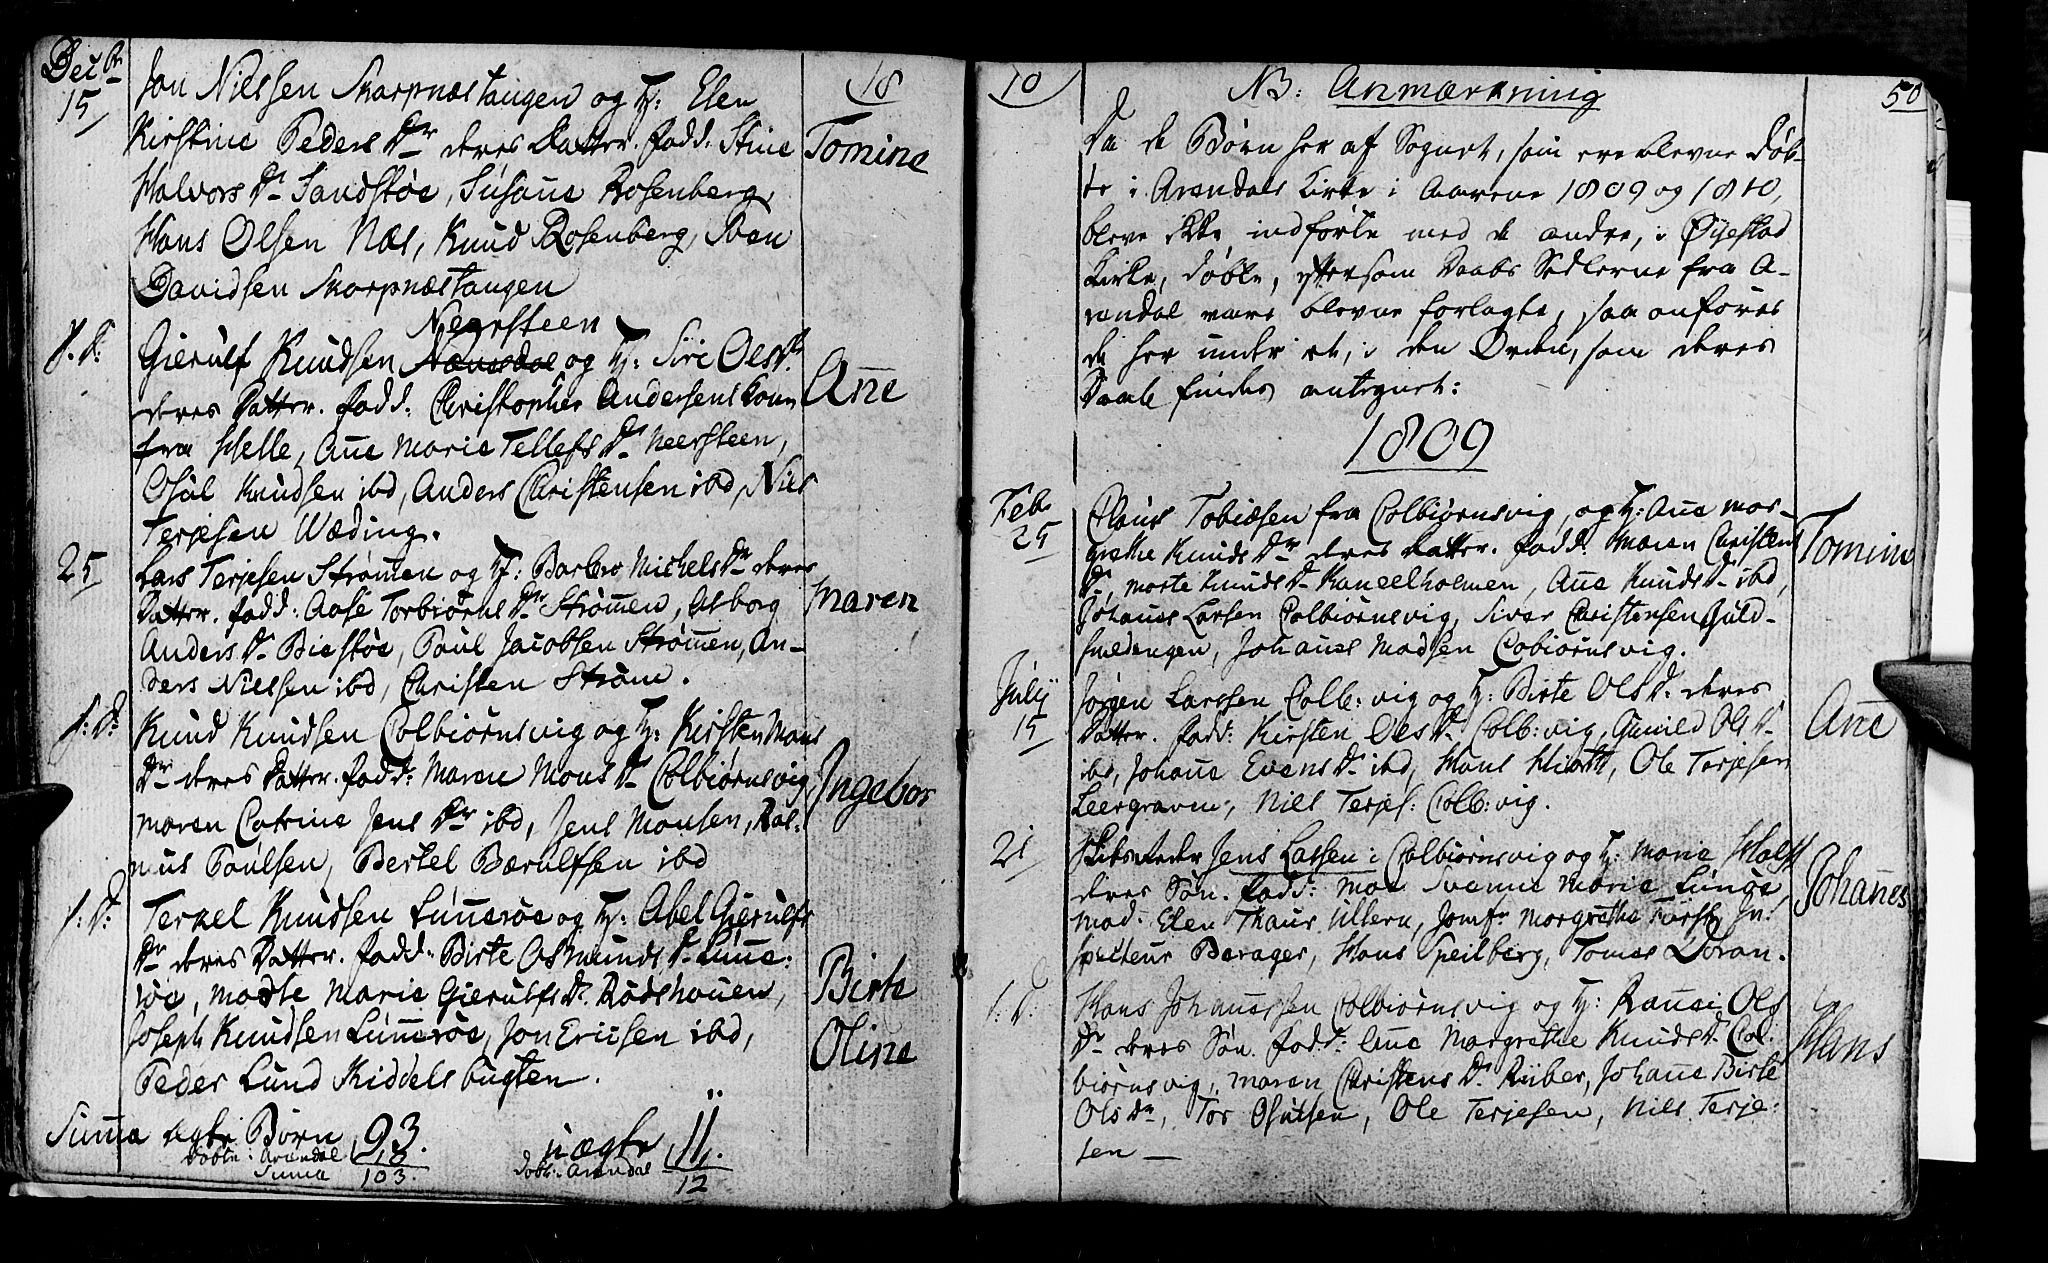 Decbr
15
Jon Nielsen Skarpnæstangen og H: Elen
Kirstine Peders Dr deres Datter. fadd: Stine
Halvors Dr Sandstøe, Susane Rosenberg,
Hans Olsen Næs, Knud Rosenberg, Sven
Davidsen Skarpnæstangen
18
Tomine
f. D:
Neersteen
Gierulf Knudsen og H: Siri Ols Dr
deres Datter. fadd: Christopher Andersens Kone
fra Helle, Ane Marie Tellefs Dr Neersteen,
Osul Knudsen ibd, Anders Christensen ibd, Niels
Terjesen Wæding.
Ane
25
Lars Terjesen Strømen og H: Barbro Michels Dr deres
Datter. fadd: Aase Torbiørns Dr Strømen, Asborg
Anders Dr Biestøe, Poul Jacobsen Strømen, An-
ders Nielsen ibd, Christen Strøm.
Maren
f. D:
Knud Knudsen Colbiørnsvig og H: Kirsten Mons
Dr deres Datter. fadd: Maren Mons Dr Colbiørnsvig,
Maren Catrine Jens Dr ibd, Jens Monsen, Ras-
mus Poulsen, Bertel Bærulfsen ibd
Ingebor
f. D:
Terkel Knudsen Lunerøe og H: Abel Gierulfs
Dr deres Datter. fadd: Birte Osmunds Dr Lune:
røe, Marte Marie Gierulfs Dr Rødshauen,
Joseph Knudsen Lunerøe, Jon Ericsen ibd,
Peder Lund Kiddelsbugten.
Birte
Oline
Suma ægte Børn 93. uægte 11.
Døbte i Arendal Døbt i Arendal
Suma 103. 12
10
NB: Anmærkning
50
Da de Børn her af Sognet, som ere blevne døb-
te i Arendals Kirke i Aarene 1809 og 1810,
bleve ikke indførte med de andre, i Øyestad
Kirke, døbte, eftersom Daabs Sedlerne fra A-
rendal vare blevne forlagte, saa anføres
de her under et, i den Orden, som deres
Daab findes antegnet:
1809
Feb
25
Claus Tobiæsen fra Colbiørnsvig, og H: Ane Mar-
grethe Knuds Dr deres Datter. fadd: Maren Christens
Dr, Marte Knuds Dr Kaneelholmen, Ane Knuds Dr ibd,
Johanes Larsen Colbiørnsvig, Siver Christensen Guld-
smedengen, Johanes Madsen Cobiørnsvig.
Tomine
July
15
Jørgen Larssen Colb: vig og H: Birte Ols Dr deres
Datter. fadd: Kirsten Ols Dr Colb: vig, Gunild Ols Dr
ibd, Johane Evens Dr ibd, Hans, Ole Terjesen
Leergravene, Niels Terjes: Colb: vig.
Ane
21
Jens Lassen i Colbiørnsvig og H: Marie Holst
deres Søn. fadd: Mad Svenne Marie Lunøe
Mad: Elen Ullern, Jomfr Margrethe In-
specteur Berager, Hans Speilberg, Tomas Doran.
Johanes
f. D:
Hans Johanessen Colbiørnsvig og H: Ranei Ols
Dr deres Søn. fadd: Ane Margrethe Knuds Dr Col-
biørnsvig, Maren Christens Dr Riiber, Johane Birte
Ols Dr, Tor Osulsen, Ole Terjesen, Niels Terje-
sen —
Hans